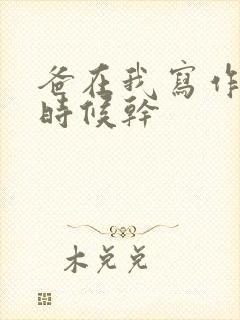 爸在我寫作
時候幹
木兑兑